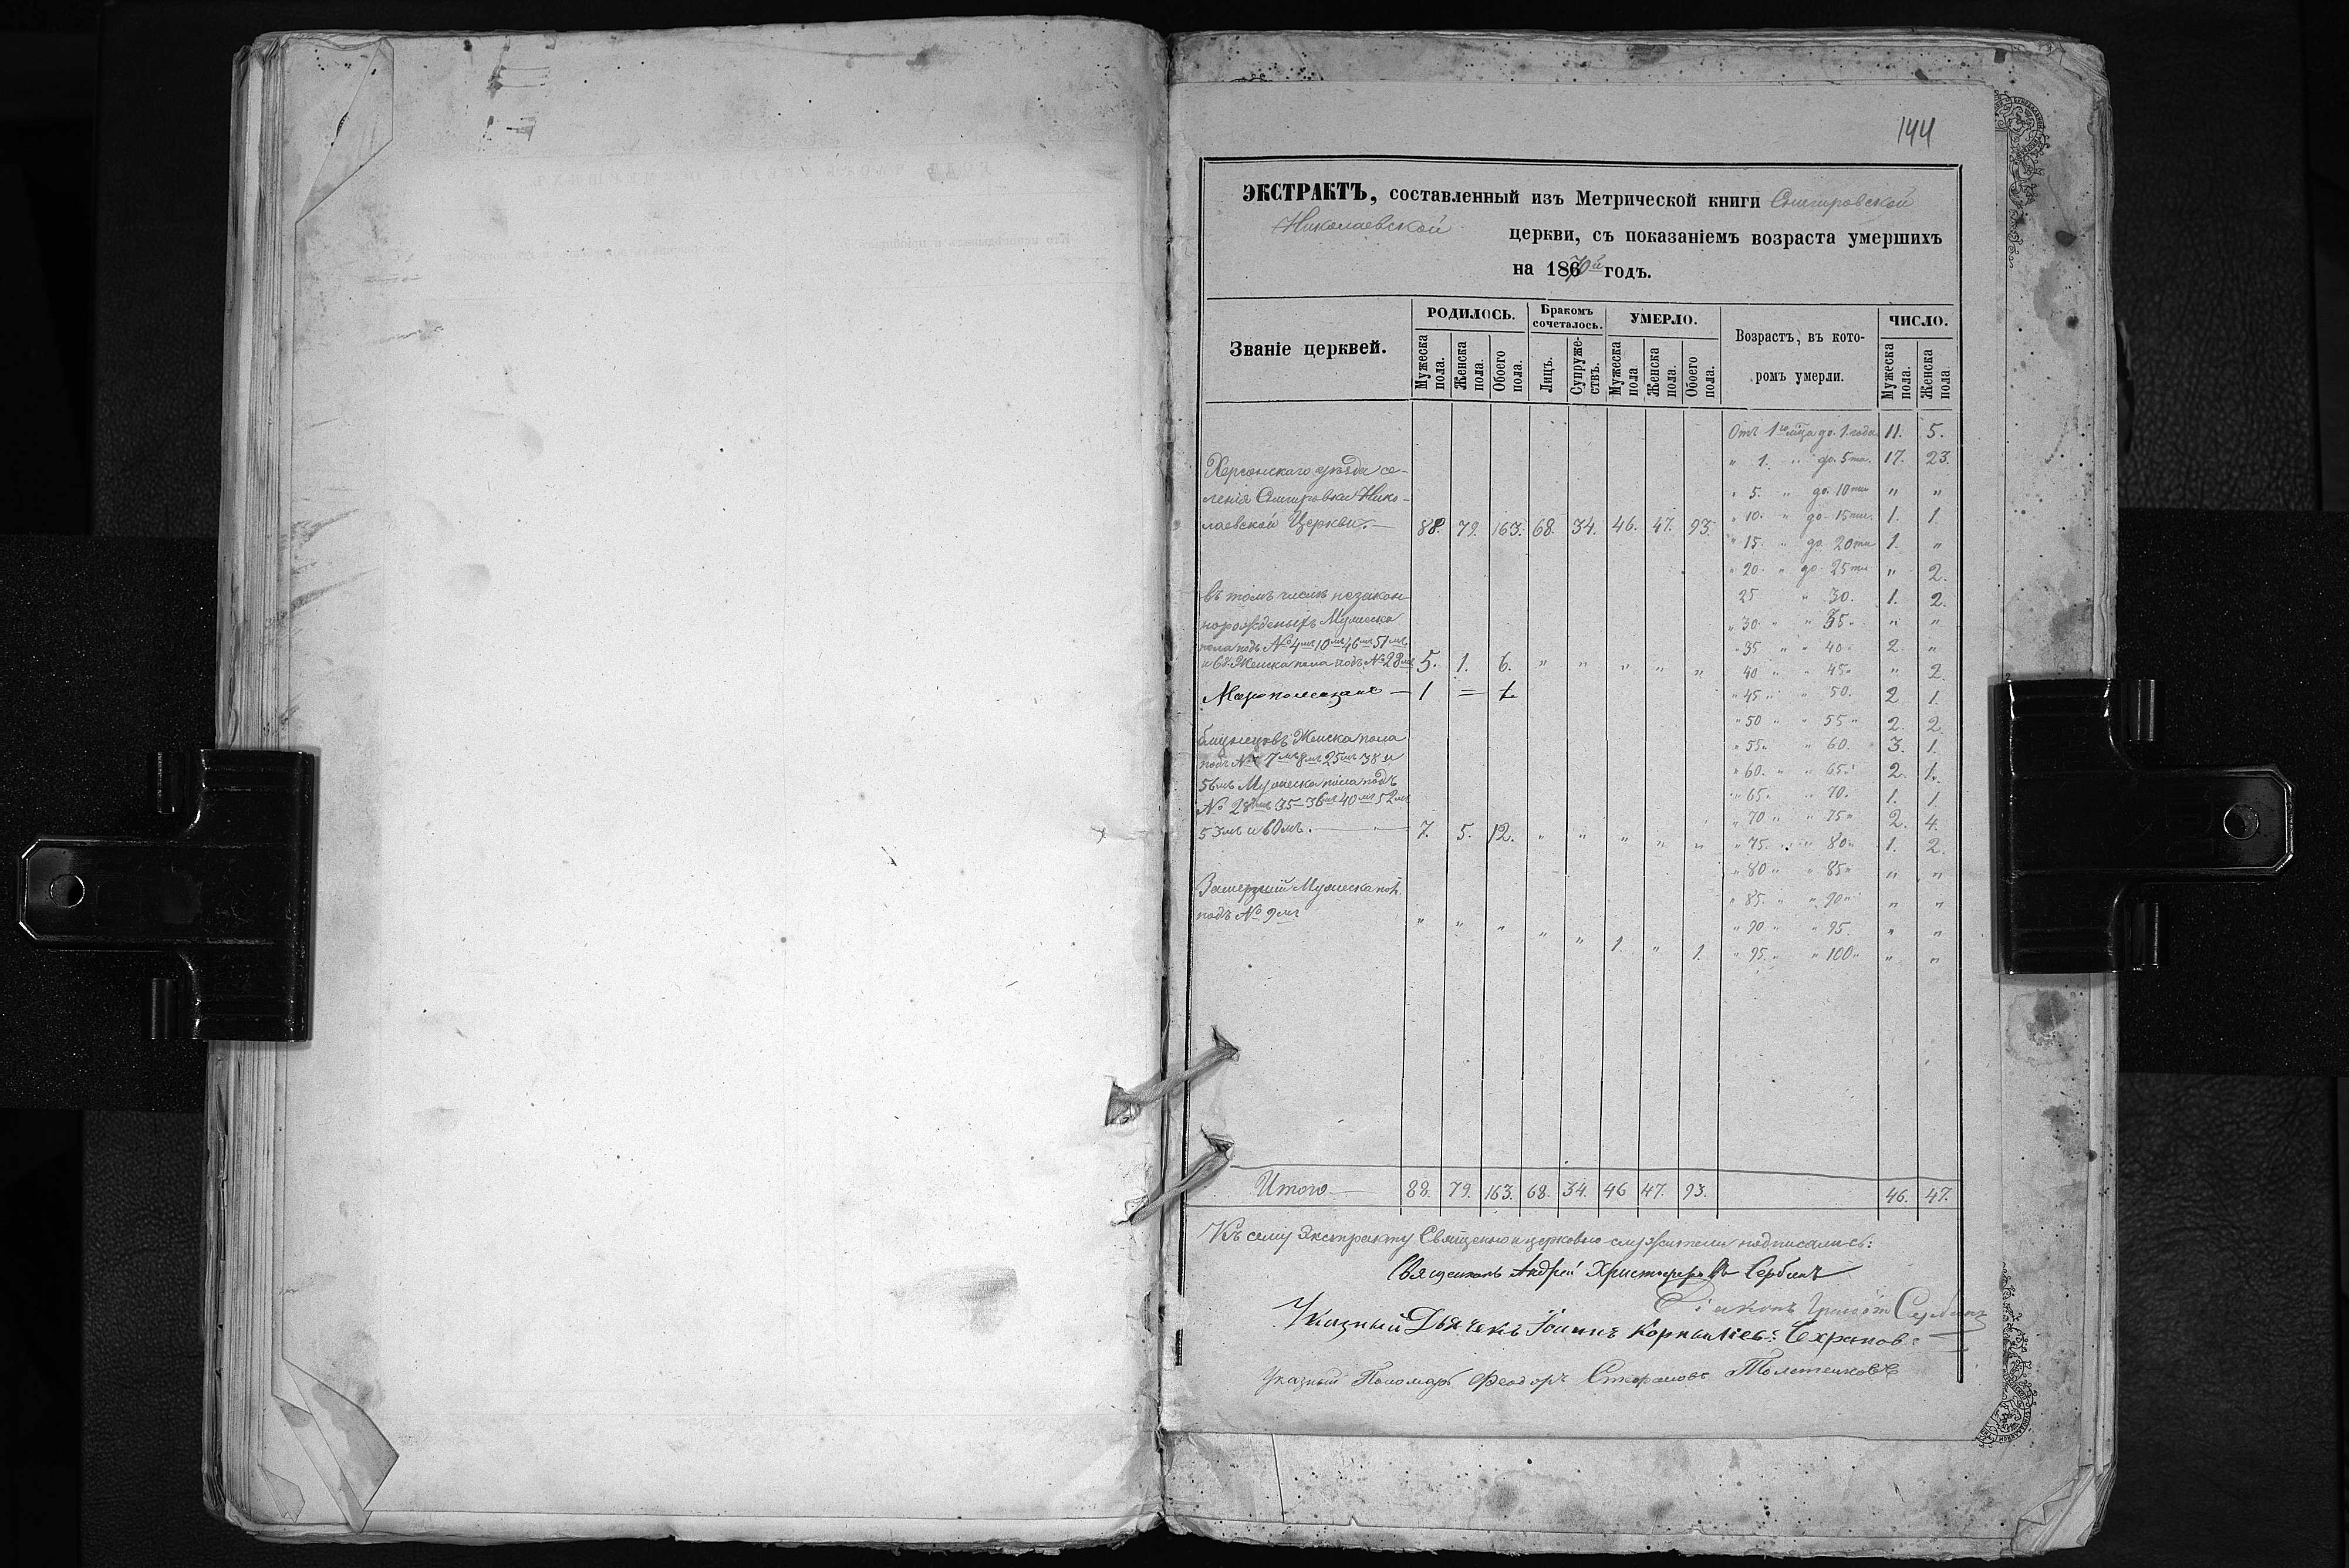 144
ЭКСТРАКТЪ, составленный изъ Метрической книги Снигировской
Николаевской церкви, съ показаніемъ возраста умершихъ
на 1870й годъ.
Званіе церквей.
РОДИЛОСЬ.
Мужеска пола.
Женска пола.
Обоего пола.
Бракомъ сочеталось.
Лицъ.
Супружествъ.
УМЕРЛО.
Мужеска пола
Женска пола.
Обоего пола.
Возрастъ, въ которомъ умерли.
ЧИСЛО.
Мужеска пола.
Женска пола
Херсонскаго уѣзда се-
ленія Снигировки Нико-
лаевской Церкви. — 88. 79. 163. 68. 34. 46. 47. 93.
въ томъ числѣ незакон
норожденыхъ Мужеска
пола подъ № 4мъ 10мъ 46мъ 51мъ
и Женска пола подъ № 28мъ 5. 1. 6. " " " " "
1 =
близнецовъ Женска пола
подъ № 7мъ 8мъ 25мъ 38 и
56мъ Мужеска пола подъ
№ 28мъ 35 36мъ 40мъ 52мъ
53мъ и 60мъ. — 7. 5. 12. " " " " "
Замерзшій Мужеска пол.
подъ № 9мъ " " " " " 1. " 1.
Отъ 1го мца до 1. года 11. 5.
" 1. " до 5ти. 17. 23.
" 5. " до 10ти " "
" 10. " до 15ти. 1. 1.
" 15. " до 20ти 1. "
" 20. " до 25ти " 2.
25 " 30. 1. 2.
" 30. " " 35. " "
" 35 " " 40. 2. "
40 " " 45. " 2.
" 45 " " 50. 2. 1.
" 50 " " 55 " 2. 2.
" 55. " 60. 3. 1.
" 60. " " 65. 2. 1.
" 65. " 70. 1. 1.
" 70 " " 75 " 2. 4.
" 75. " " 80 " 1. 2.
" 80 " " 85 " " "
" 85. " " 90 " " "
" 90 " " 95. " "
" 95. " " 100 " " "
Итого — 88. 79. 163. 68. 34. 46 47. 93. 46. 47.
Къ сему Экстракту Священно и церковно-служители подписались:
Священникъ Андрей Христофоровъ Сербинъ
Діаконъ Сербинъ
Указный Дьячекъ Іоаннъ Корниліевъ
Указный Пономарь Феодоръ Стефановъ